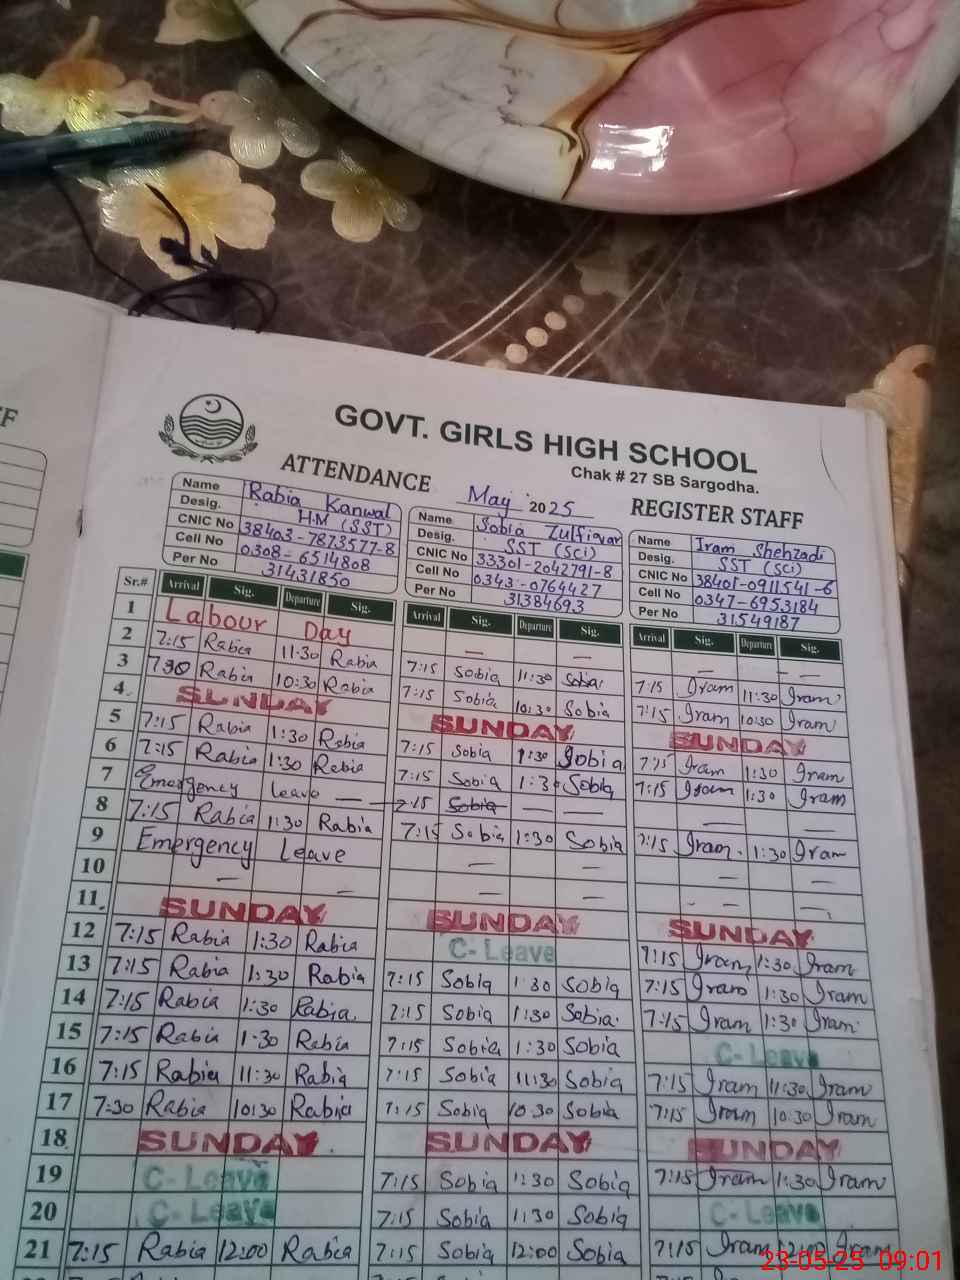 F
GOVT. GIRLS HIGH SCHOOL
Chak # 27 SB Sargodha.
ATTENDANCE May 2025 REGISTER STAFF
Name Rabia Kanwal
Desig. H.M (SST)
CNIC No 38403-7873577-8
Cell No 0308-6514808
Per No 31431850
Name Sobia Zulfiqar
Desig. SST (Sci)
CNIC No 33301-2042791-8
Cell No 0343-0764427
Per No 31384693
Name Iram Shehzadi
Desig. SST (Sci)
CNIC No 38401-0911541-6
Cell No 0347-6953184
Per No 31549187
Sr.# Arrival Sig. Departure Sig. Arrival Sig. Departure Sig. Arrival Sig. Departure Sig.
1 Labour Day — — — —
2 7:15 Rabia 11:30 Rabia 7:15 Sobia 11:30 Sobia 7:15 Iram 11:30 Iram
3 7:30 Rabia 10:30 Rabia 7:15 Sobia 10:30 Sobia 7:15 Iram 10:30 Iram
4 SUNDAY SUNDAY SUNDAY
5 7:15 Rabia 1:30 Rabia 7:15 Sobia 1:30 Sobia 7:15 Iram 1:30 Iram
6 7:15 Rabia 1:30 Rabia 7:15 Sobia 1:30 Sobia 7:15 Iram 1:30 Iram
7 Emergency leave — — 7:15 Sobia — — — —
8 7:15 Rabia 1:30 Rabia 7:15 Sobia 1:30 Sobia 7:15 Iram 1:30 Iram
9 Emergency Leave — — — —
10 — — — — - - —
11 SUNDAY SUNDAY SUNDAY
12 7:15 Rabia 1:30 Rabia C- Leave 7:15 Iram 1:30 Iram
13 7:15 Rabia 1:30 Rabia 7:15 Sobia 1:30 Sobia 7:15 Iram 1:30 Iram
14 7:15 Rabia 1:30 Rabia 7:15 Sobia 1:30 Sobia 7:15 Iram 1:30 Iram
15 7:15 Rabia 1:30 Rabia 7:15 Sobia 1:30 Sobia C- Leave
16 7:15 Rabia 11:30 Rabia 7:15 Sobia 11:30 Sobia 7:15 Iram 11:30 Iram
17 7:30 Rabia 10:30 Rabia 7:15 Sobia 10:30 Sobia 7:15 Iram 10:30 Iram
18 SUNDAY SUNDAY SUNDAY
19 C- Leave 7:15 Sobia 1:30 Sobia 7:15 Iram 1:30 Iram
20 C- Leave 7:15 Sobia 1:30 Sobia C- Leave
21 7:15 Rabia 12:00 Rabia 7:15 Sobia 12:00 Sobia 7:15 Iram 12:00 Iram
23-05-25 09:01